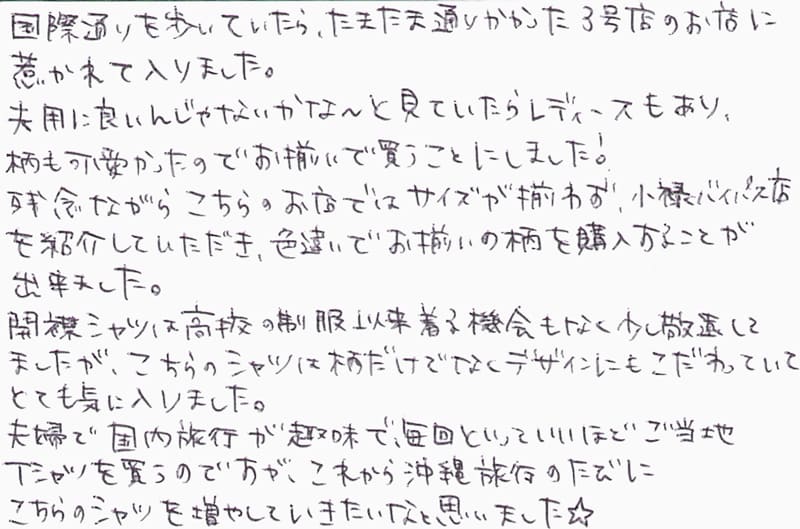 国際通りを歩いていたら、たまたま通りかかった3号店のお店に
惹かれて入りました。
夫用に良いんじゃないかな〜と見ていたらレディースもあり、
柄も可愛かったのでお揃いで買うことにしました!
残念ながらこちらのお店ではサイズが揃わず、小禄バイパス店
を紹介していただき、色違いでお揃いの柄を購入することが
出来ました。
開襟シャツは高校の制服以来着る機会もなく少し敬遠して
ましたが、こちらのシャツは柄だけでなくデザインにもこだわっていて
とても気に入りました。
夫婦で国内旅行が趣味で、毎回といっていいほどご当地
Tシャツを買うのですが、これから沖縄旅行のたびに
こちらのシャツを増やしていきたいなと思いました☆